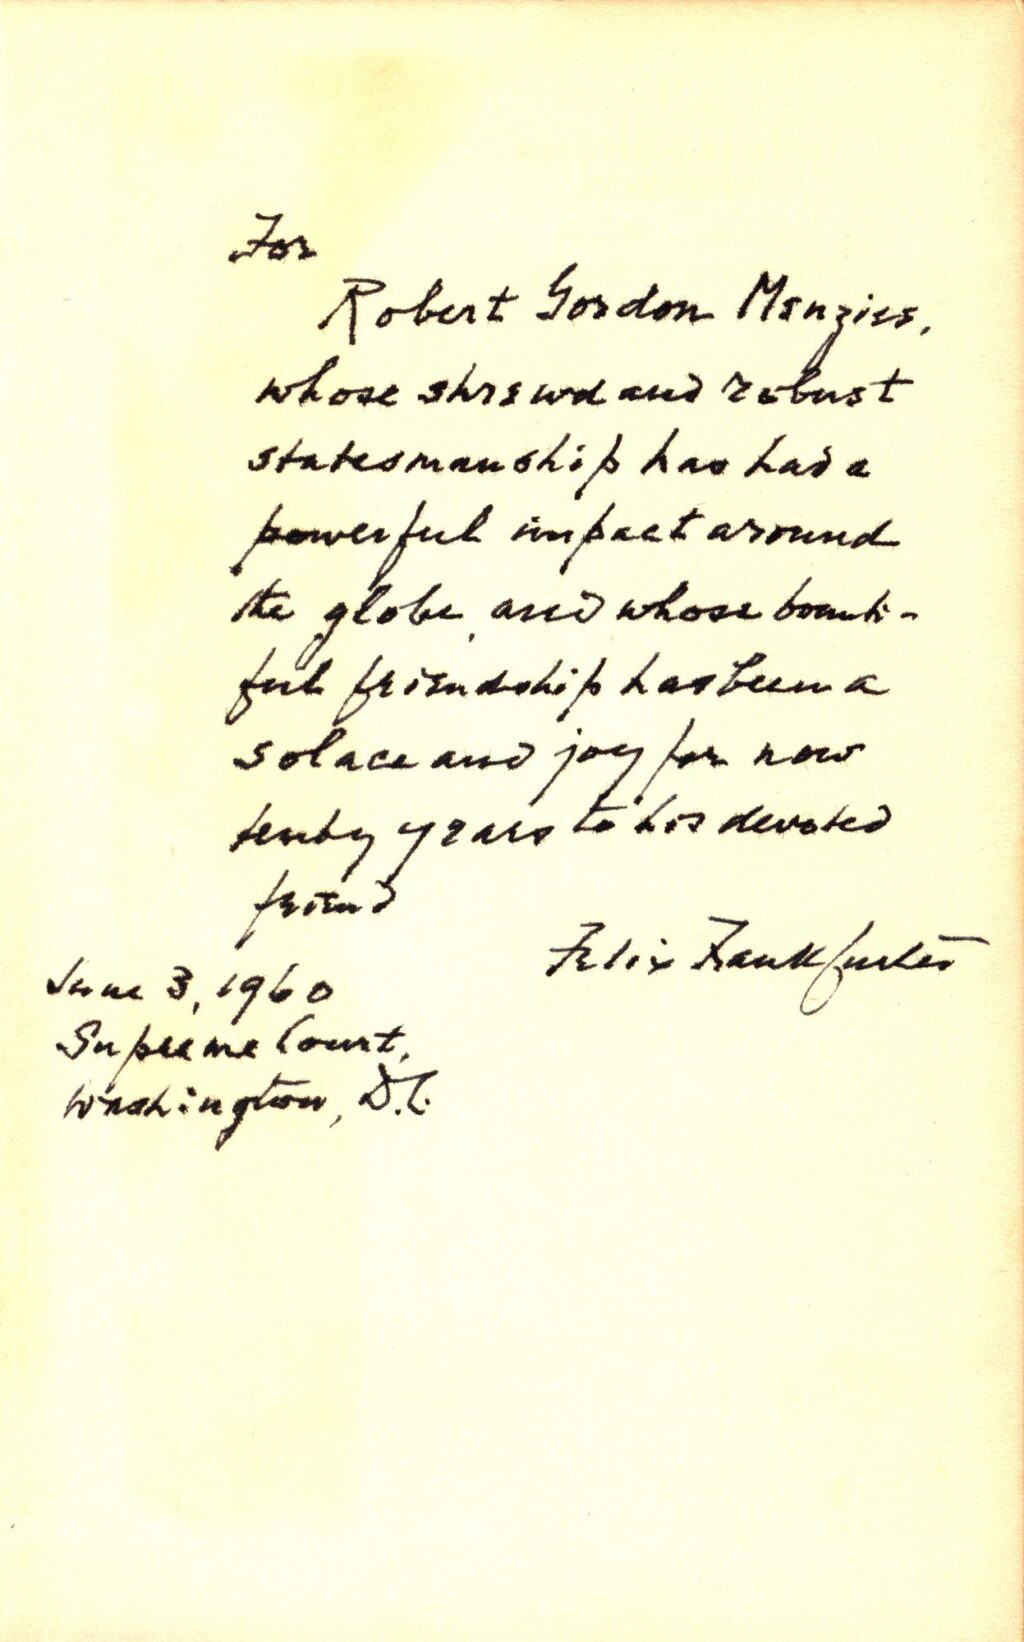 For
Robert Gordon Menzies,
whose shrewd and robust
statesmanship has had a
powerful impact around
the globe, and whose beauti-
ful friendship has been a
solace and joy for now
twenty years to his devoted
friend
Felix Frankfurter
June 3, 1960
Supreme Court,
Washington, D.C.